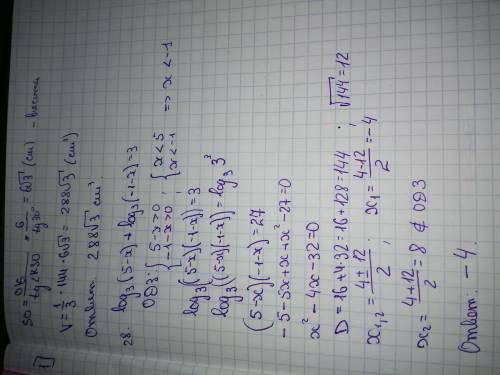 SO = OK / tg∠KSO = 6 / tg30° = 6√3 (cm) - висота
V = 1/3 · 144 · 6√3 = 288√3 (cm³)
Ответ: 288√3 cm³.
28. log₃(5-x) + log₃(-1-x) = 3
ОДЗ: { 5-x>0 ; -1-x>0 ; { x<5 x<-1 => x < -1
log₃((5-x)(-1-x)) = 3
log₃((5-x)(-1-x)) = log₃ 3³
(5-x)(-1-x) = 27
-5-5x+x+x²-27=0
x²-4x-32=0
D = 16+4·32 = 16+128 = 144 ; √144 = 12
x₁,₂ = (4±12)/2 ; x₁ = (4-12)/2 = -4
x₂ = (4+12)/2 = 8 ∉ ОДЗ
Ответ: -4.